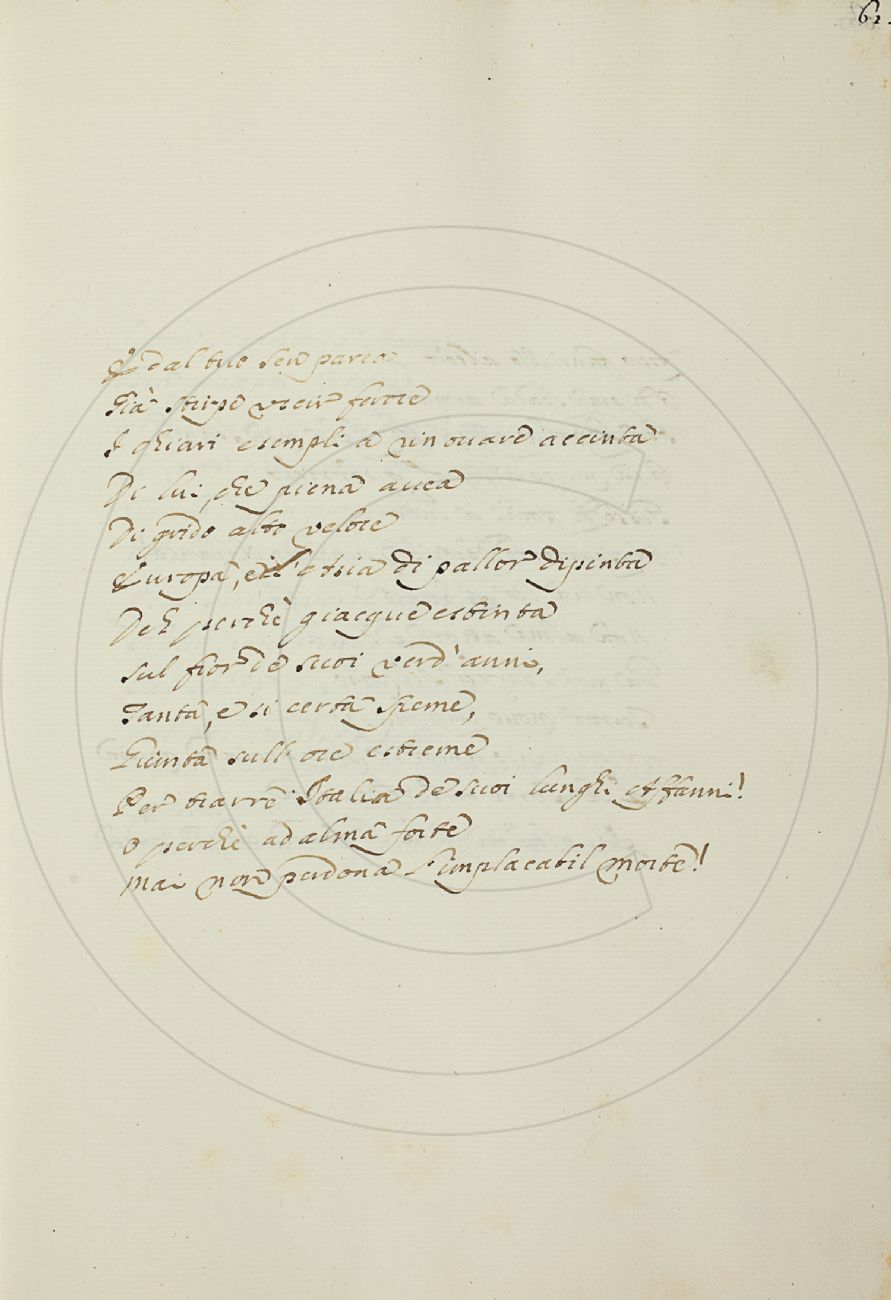 61.
E dal tuo sen parea
Già stirpe uscir feroce
I chiari esempli a rinouare accinta
Di lui, che piena auea
Di grido alto veloce
Europa, e l'Asia di pallor dipinta
Deh perchè giacque estinta
Sul fior de suoi verd' anni,
Tanta, e si certa speme,
Giunta sull' ore estreme
Per trarre Italia de suoi lunghi affanni!
O perchè ad alma forte
Mai non perdona l'implacabil morte!